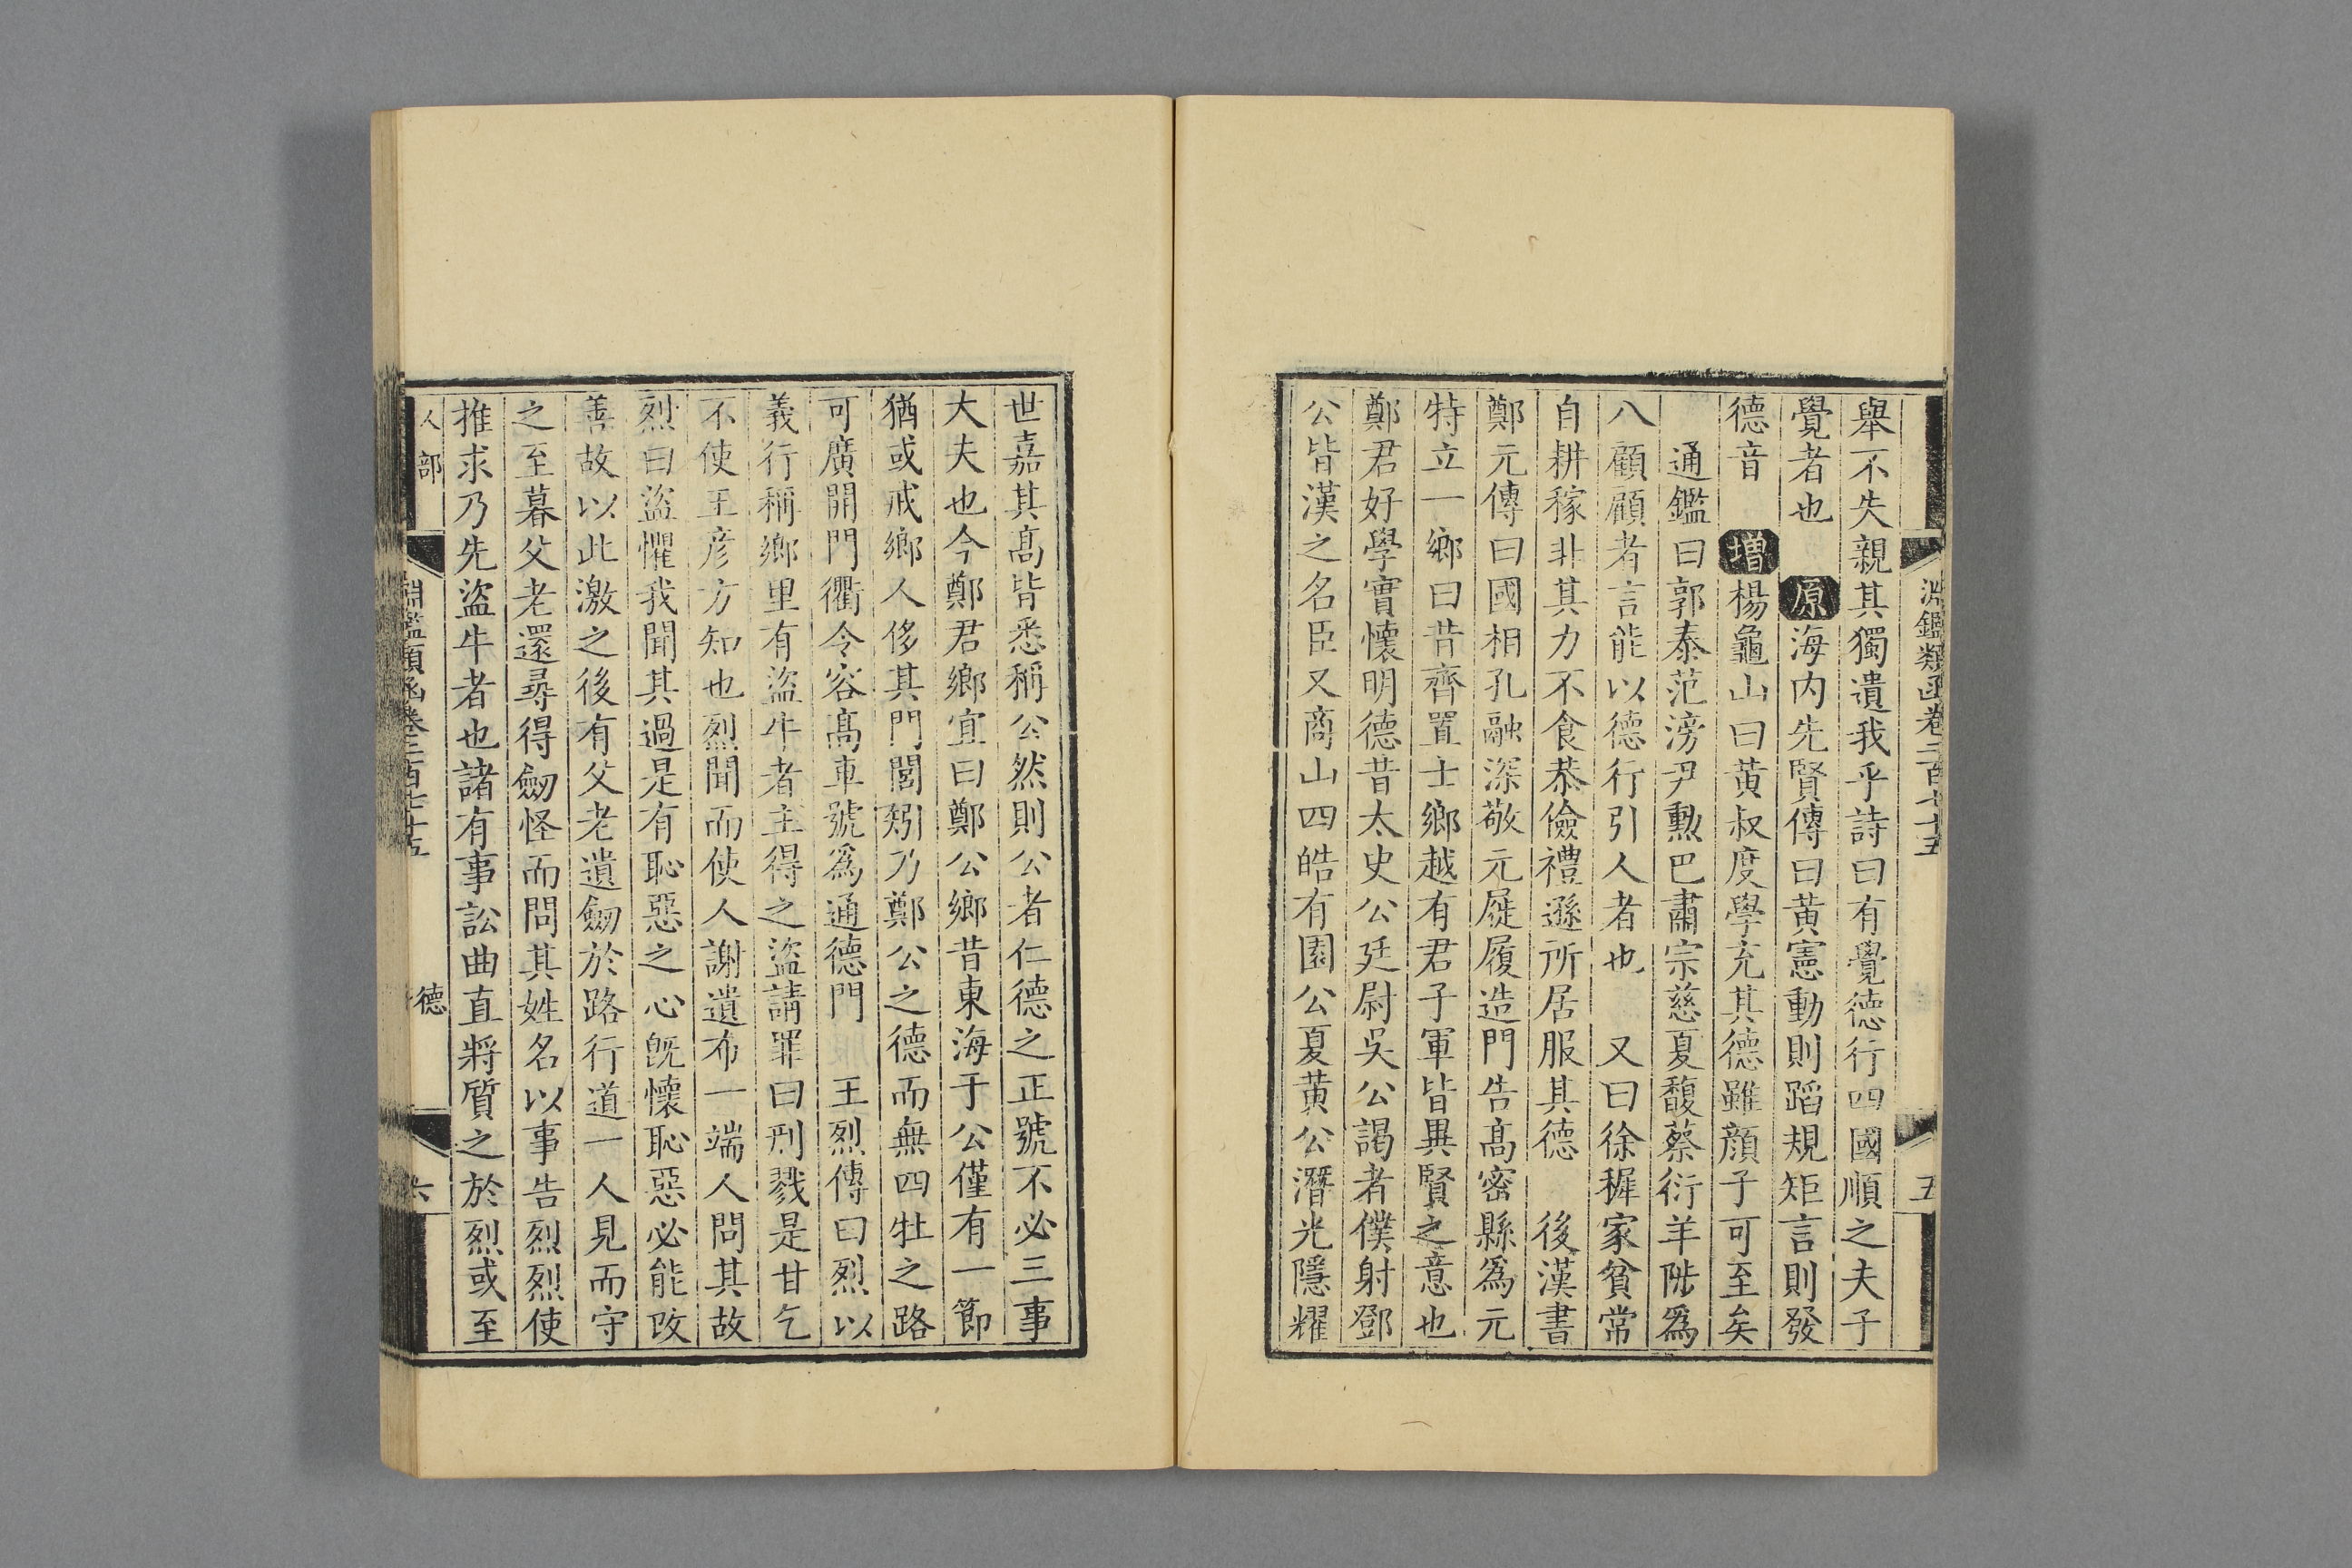 淵鑑類函卷二百七十五
五
舉不失親其獨遺我乎詩曰有覺德行四國順之夫子
覺者也 原海内先賢傳曰黄憲動則蹈規矩言則發
德音 增楊龜山曰黄叔度學充其德雖顔子可至矣
通鑑曰郭泰范滂尹勲巴肅宗慈夏馥蔡衍羊陟爲
八顧顧者言能以德行引人者也 又曰徐穉家貧常
自耕稼非其力不食恭儉禮遜所居服其德 後漢書
鄭元傳曰國相孔融深敬元屣履造門告髙密縣爲元
特立一鄉曰昔齊置士鄉越有君子軍皆異賢之意也
鄭君好學實懷明德昔太史公廷尉吳公謁者僕射鄧
公皆漢之名臣又商山四皓有園公夏黄公潛光隱耀
世嘉其髙皆悉稱公然則公者仁德之正號不必三事
大夫也今鄭君鄉宜曰鄭公鄉昔東海于公僅有一節
猶或戒鄉人侈其門閭矧乃鄭公之德而無四牡之路
可廣開門衢令容髙車號爲通德門 王烈傳曰烈以
義行稱鄉里有盜牛者主得之盜請罪曰刑戮是甘乞
不使王彦方知也烈聞而使人謝遺布一端人問其故
烈曰盜懼我聞其過是有恥惡之心旣懷恥惡必能改
善故以此激之後有父老遺劒於路行道一人見而守
之至暮父老還尋得劒怪而問其姓名以事告烈烈使
推求乃先盜牛者也諸有事訟曲直將質之於烈或至
人部
淵鑑類函卷二百七十五
德
六